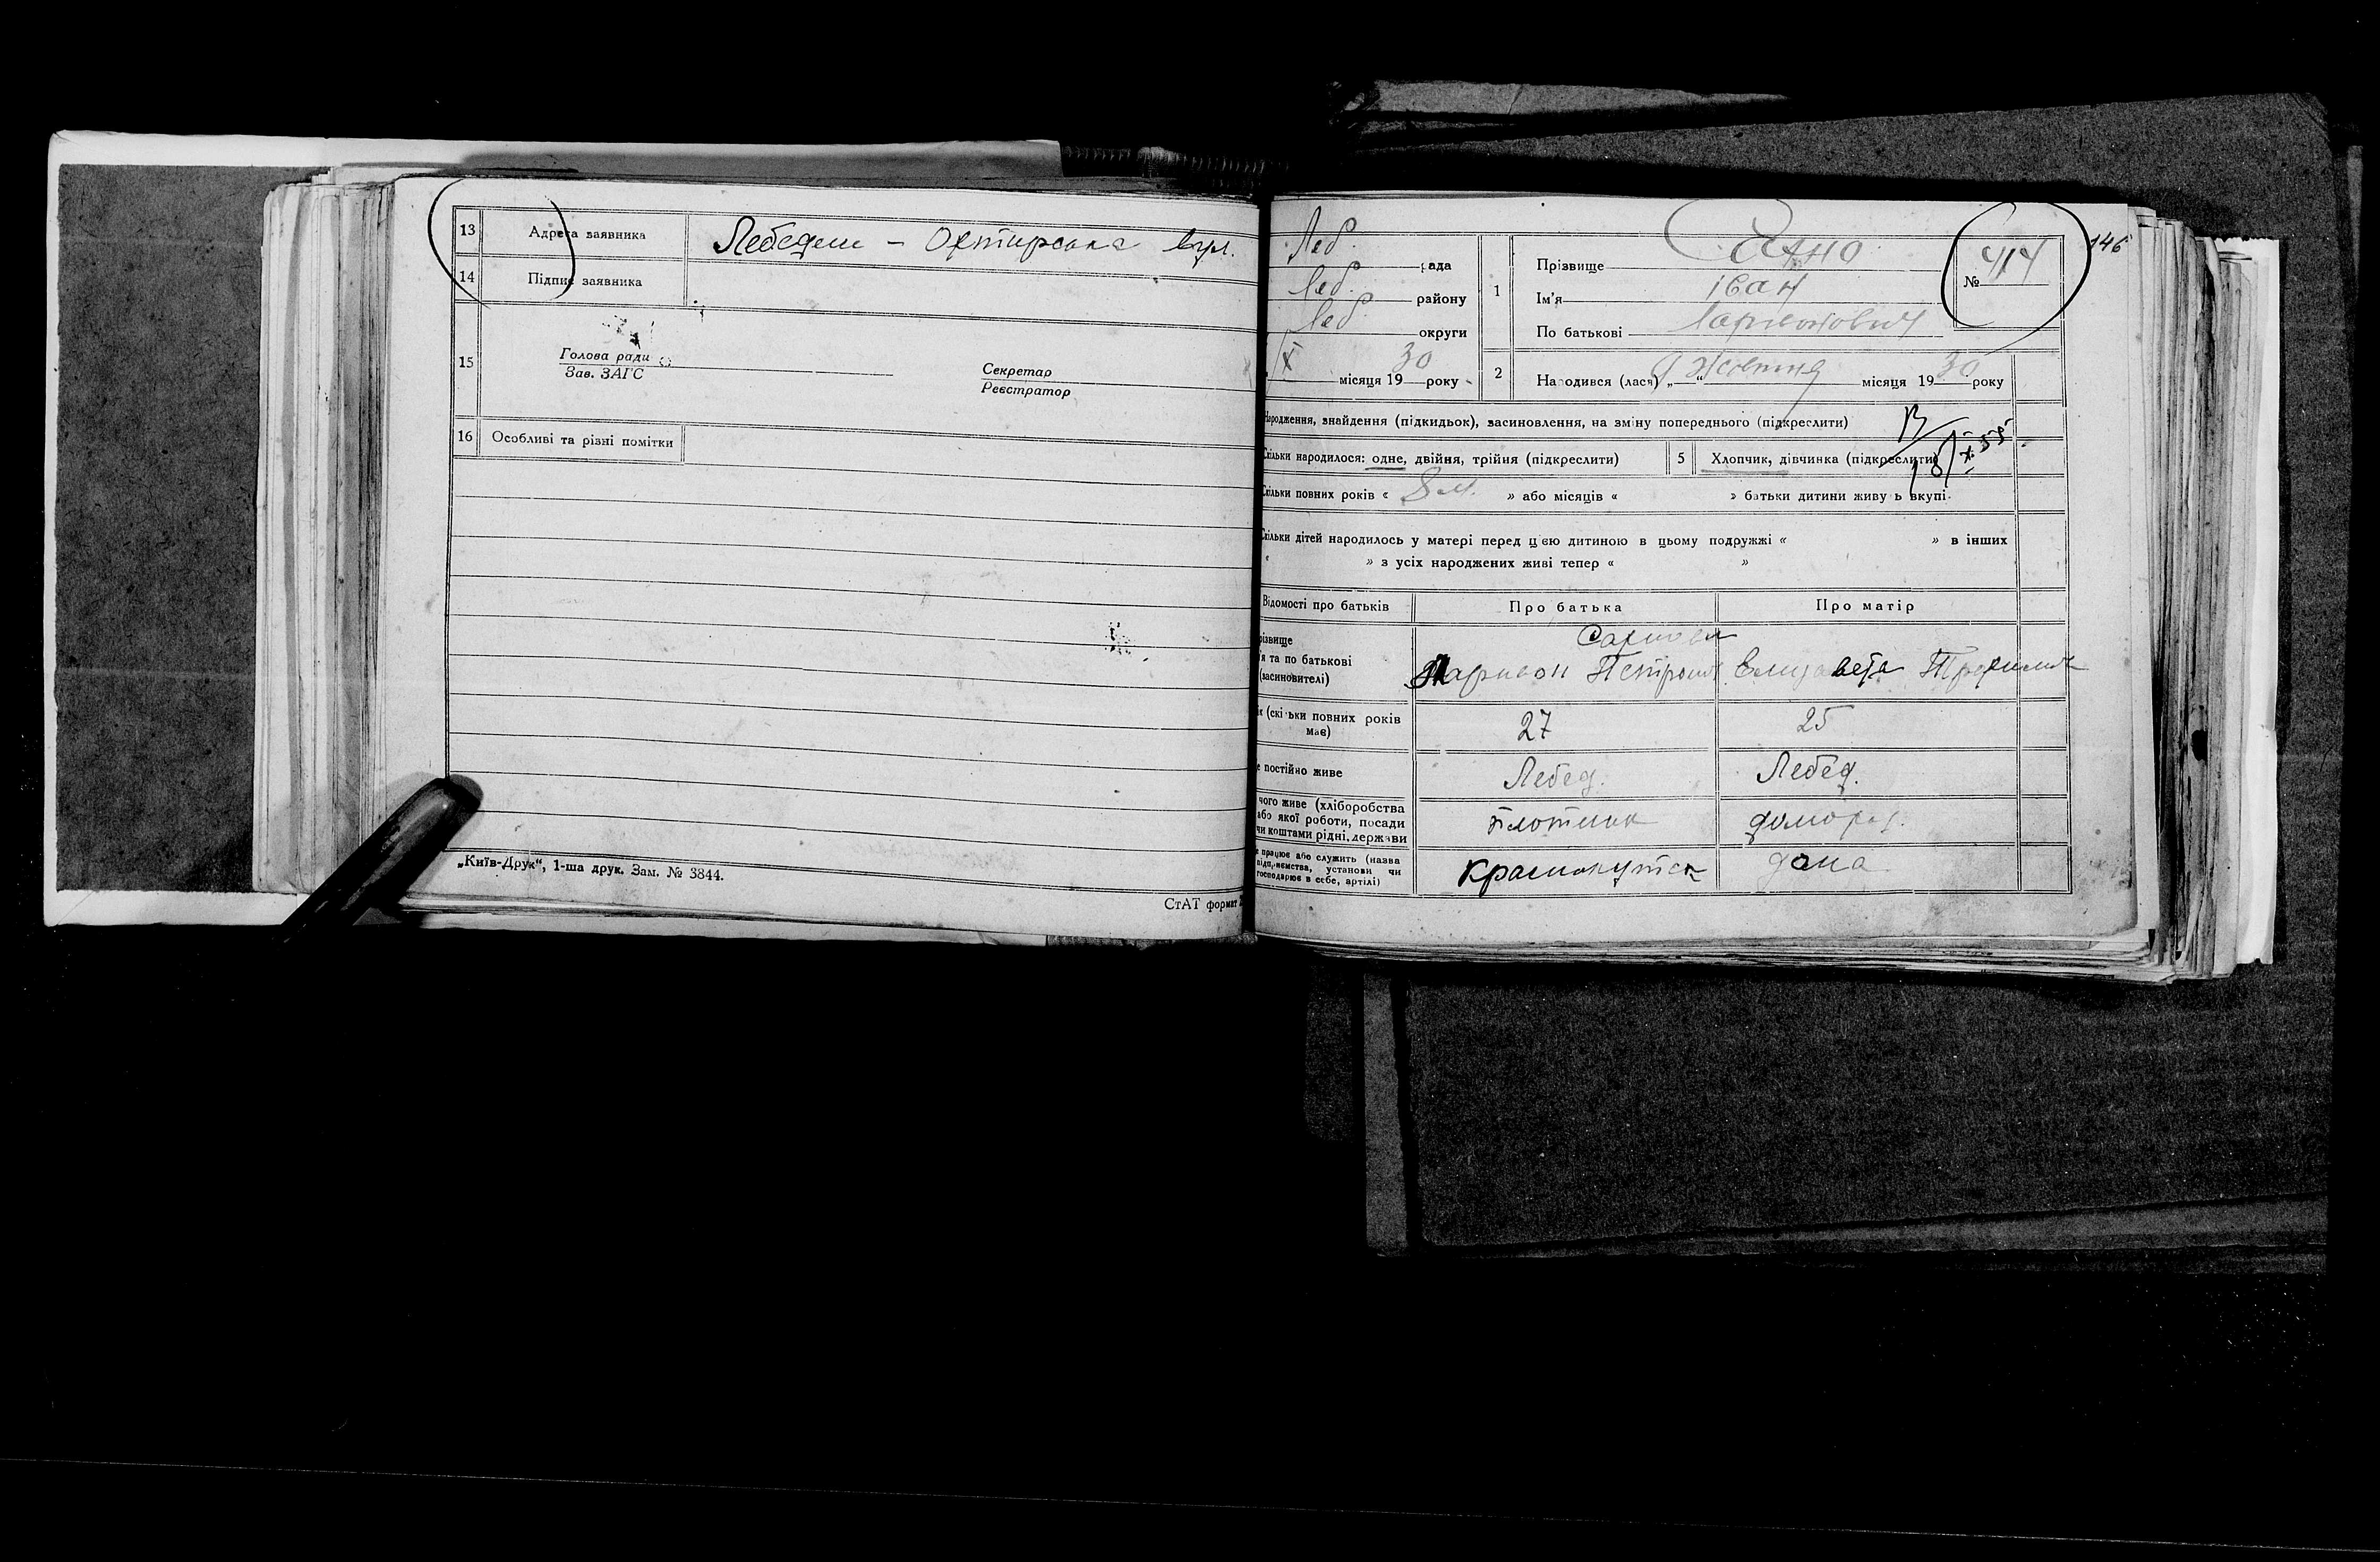 13 Адреса заявника Лебедин – Охтирська вул.
14 Підпис заявника
15 Голова ради
Зав. ЗАГС
Секретар
Реєстратор
16 Особливі та різні помітки
„Київ-Друк“, 1-ша друк. Зам. № 3844.
СтАТ формат
146
Леб. рада
Леб. району
Леб. округи
X місяця 1930 року
1 Прізвище
Ім'я Іван
По батькові Ларивонович
№ 414
2 Народився (лася) „ “ жовтня місяця 1930 року
народження, знайдення (підкидьок), засиновлення, на зміну попереднього (підкреслити)
Скільки народилося: одне, двійня, трійня (підкреслити)
5 Хлопчик, дівчинка (підкреслити)
Скільки повних років « 8 » або місяців « » батьки дитини живуть вкупі
Скільки дітей народилось у матері перед цією дитиною в цьому подружжі « » в інших
« » з усіх народжених живі тепер « »
Відомості про батьків Про батька Про матір
різвище
'я та по батькові
(засиновителі)
Ларивон Петрович Елизавета
ік (скільки повних років має) 27 25
е постійно живе Лебед. Лебед.
чого живе (хліборобства
або якої роботи, посади
чи коштами рідні, держави
плотник домогос.
е працює або служить (назва
підприємства, установи чи
господарює в себе, артілі)
Краснокутск дома